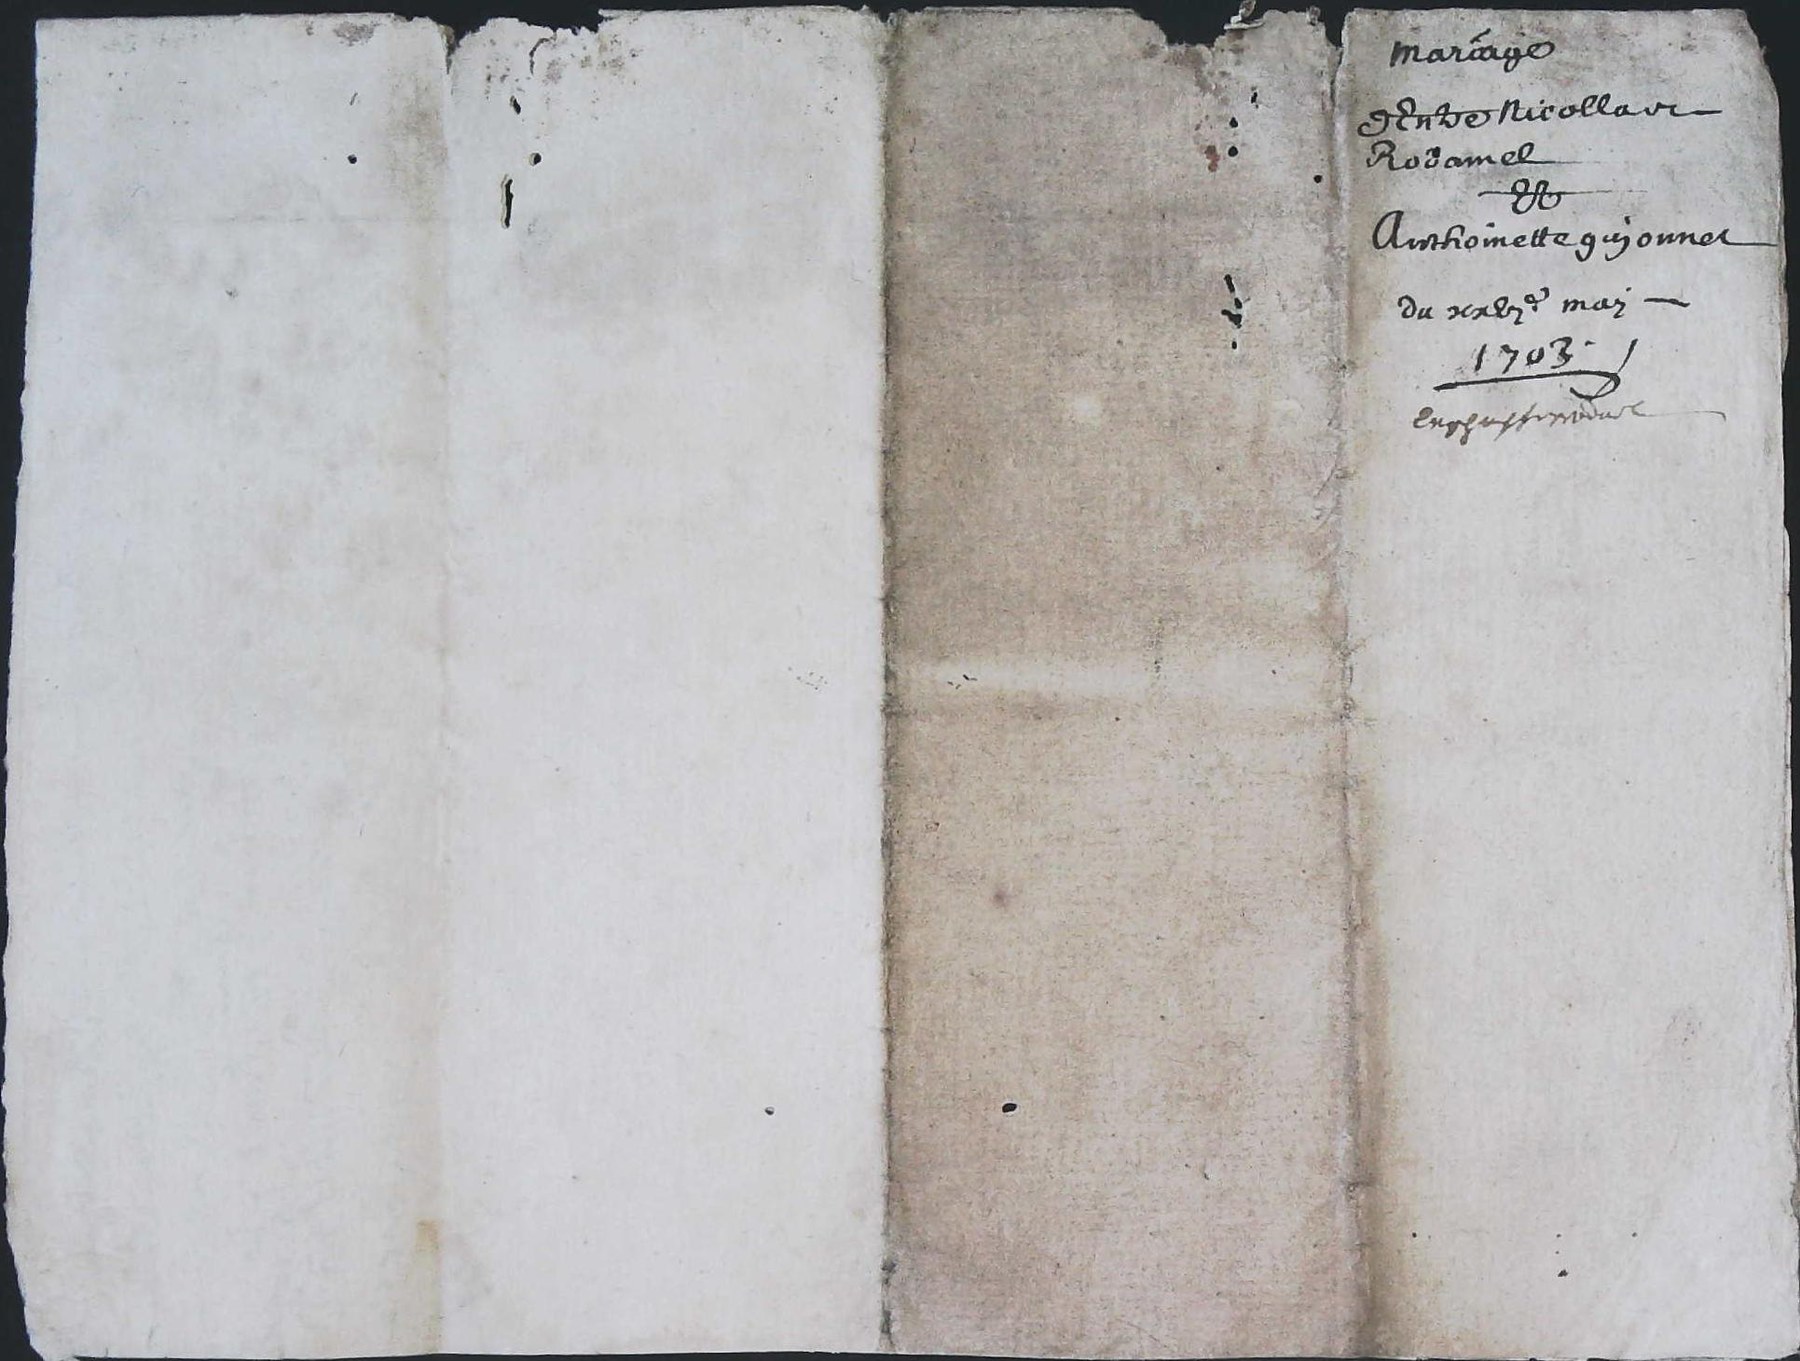 mariage
d'Entre Nicollas
Rodamel
&
Anthoinette guyonnet
du xxvje may
1703